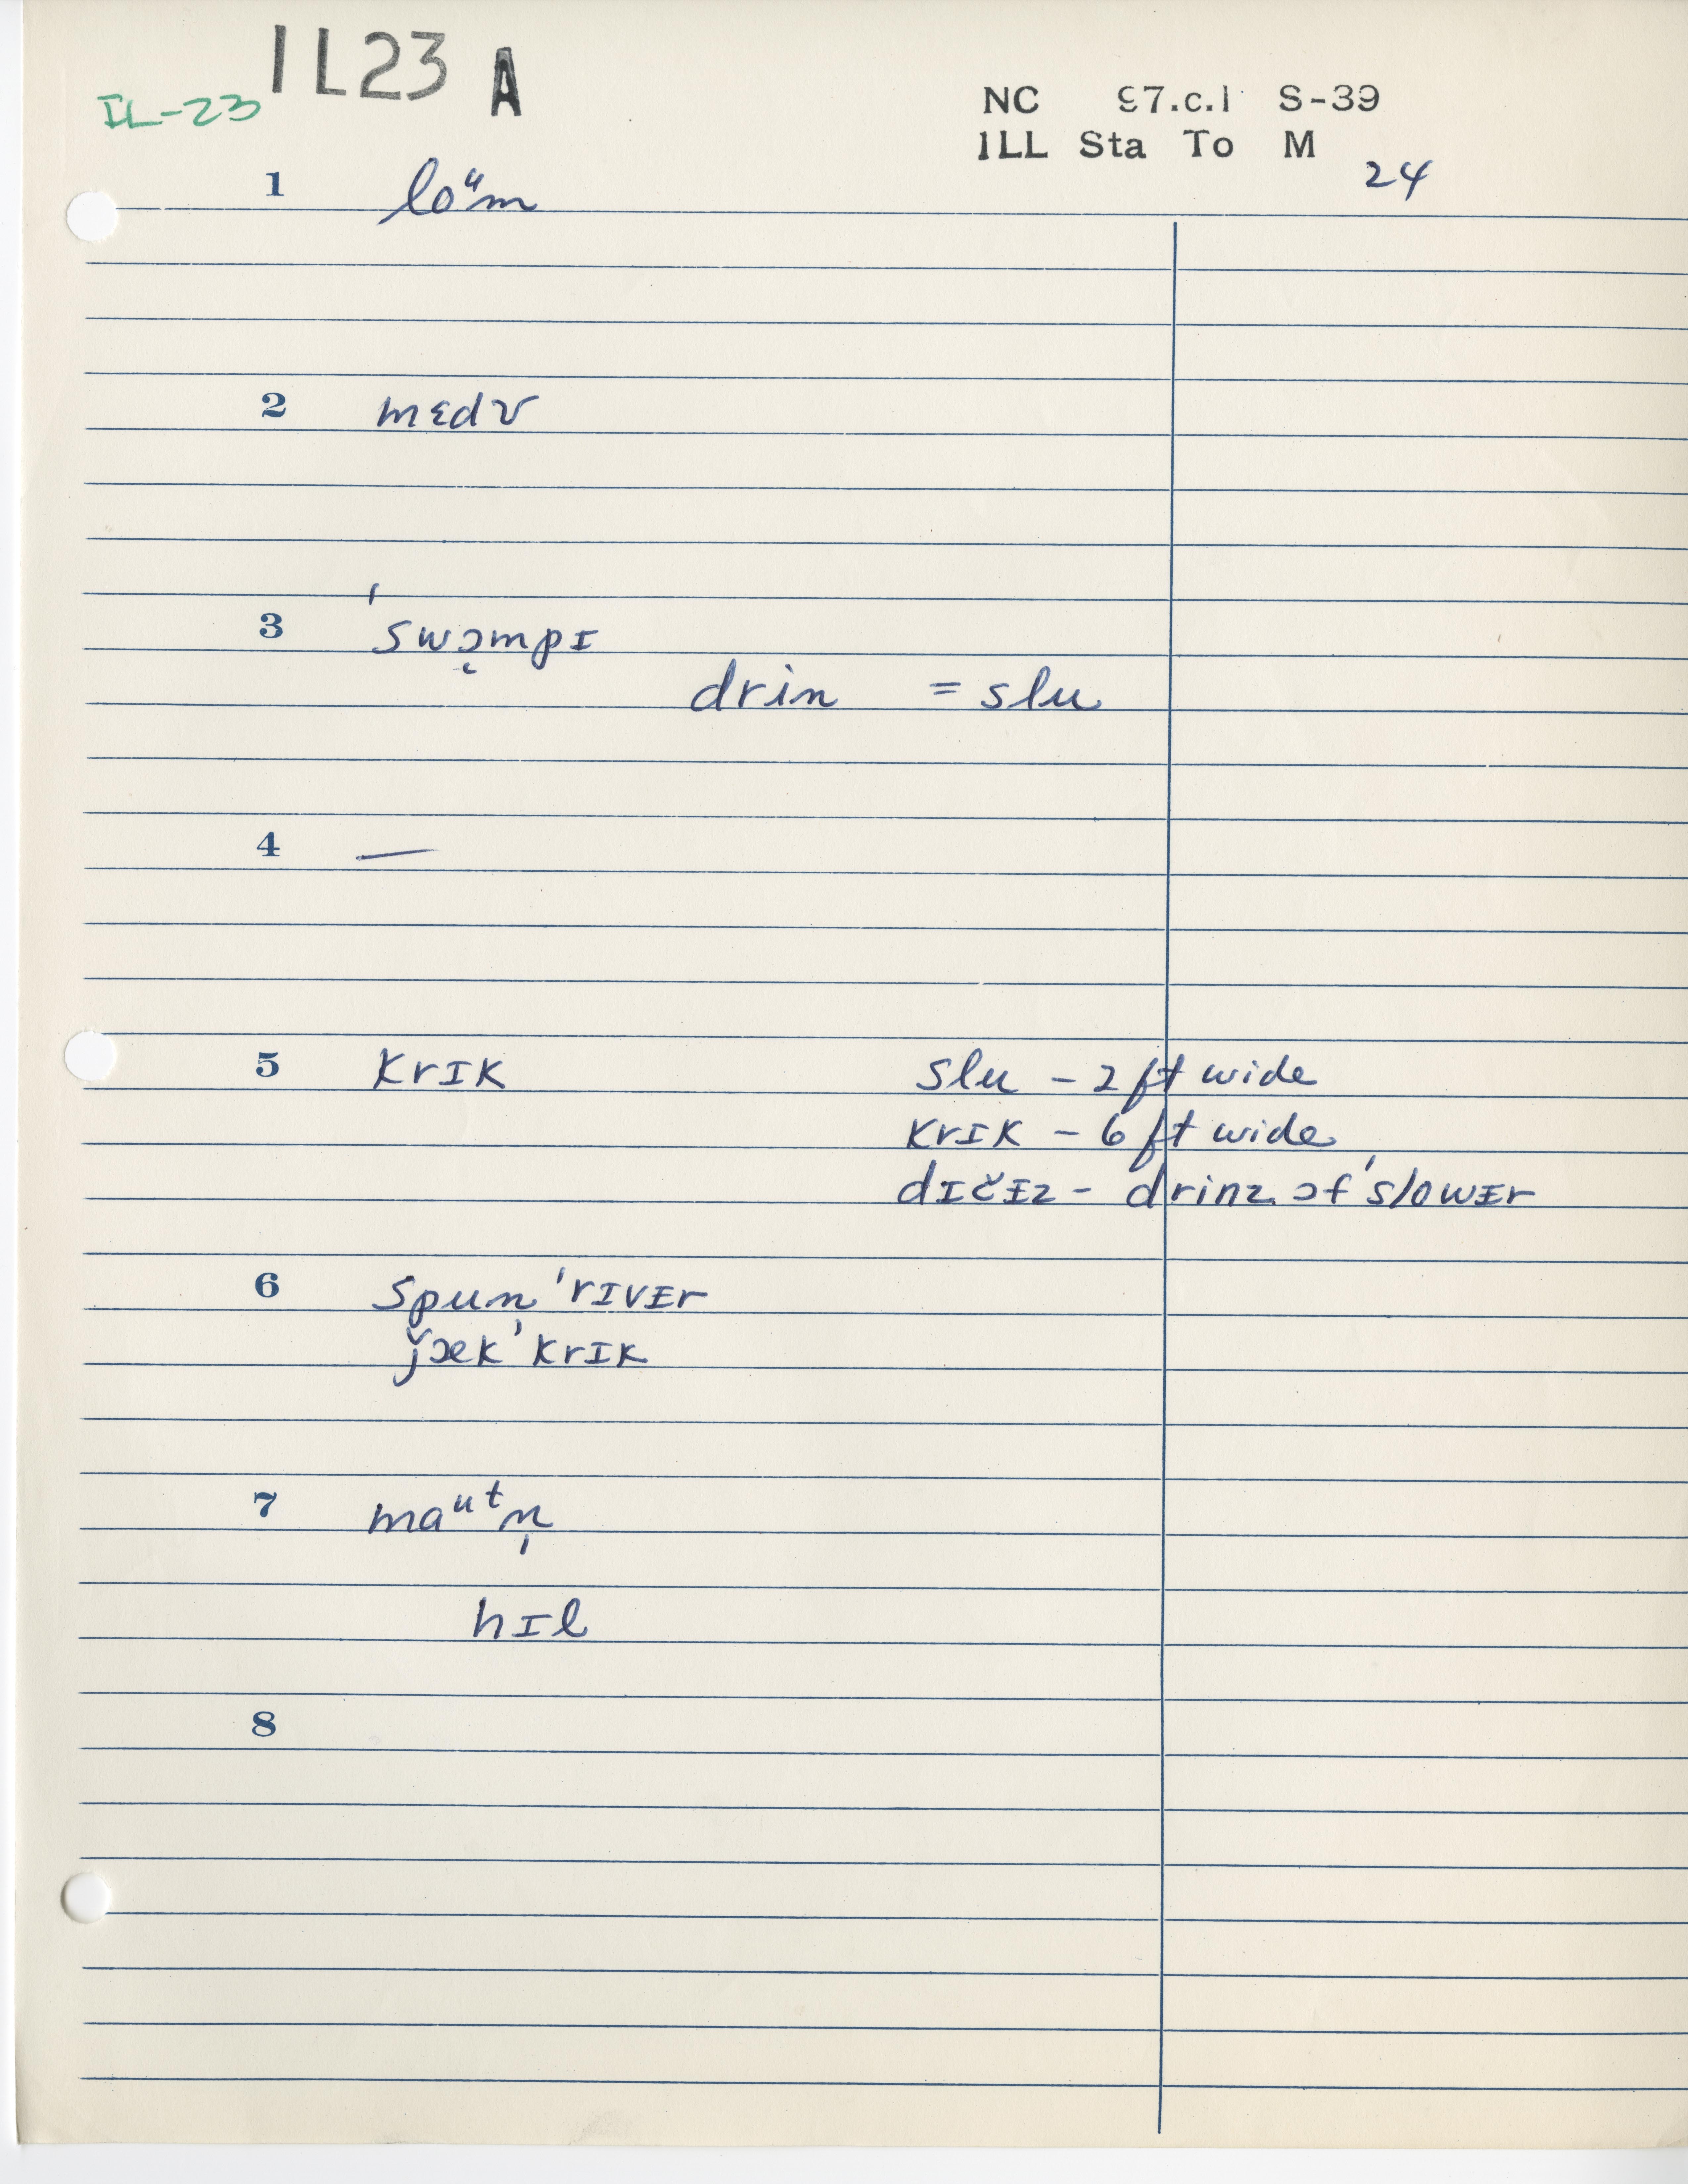 IL23 A
IL-23
NC 97.c.1 S-39
ILL Sta To M
24
1 loᵘm
2 mɛdʊ
3 ˈswɔ̜mpɪ
drin = slu
4 —
5 krɪk slu – 2 ft wide
krɪk – 6 ft wide
dɪčɪz – drinz ɔf ˈslowɪr
6 spun ˈrɪvɪr
ǰæk ˈkrɪk
7 maᵘᵗn̩
hɪl
8